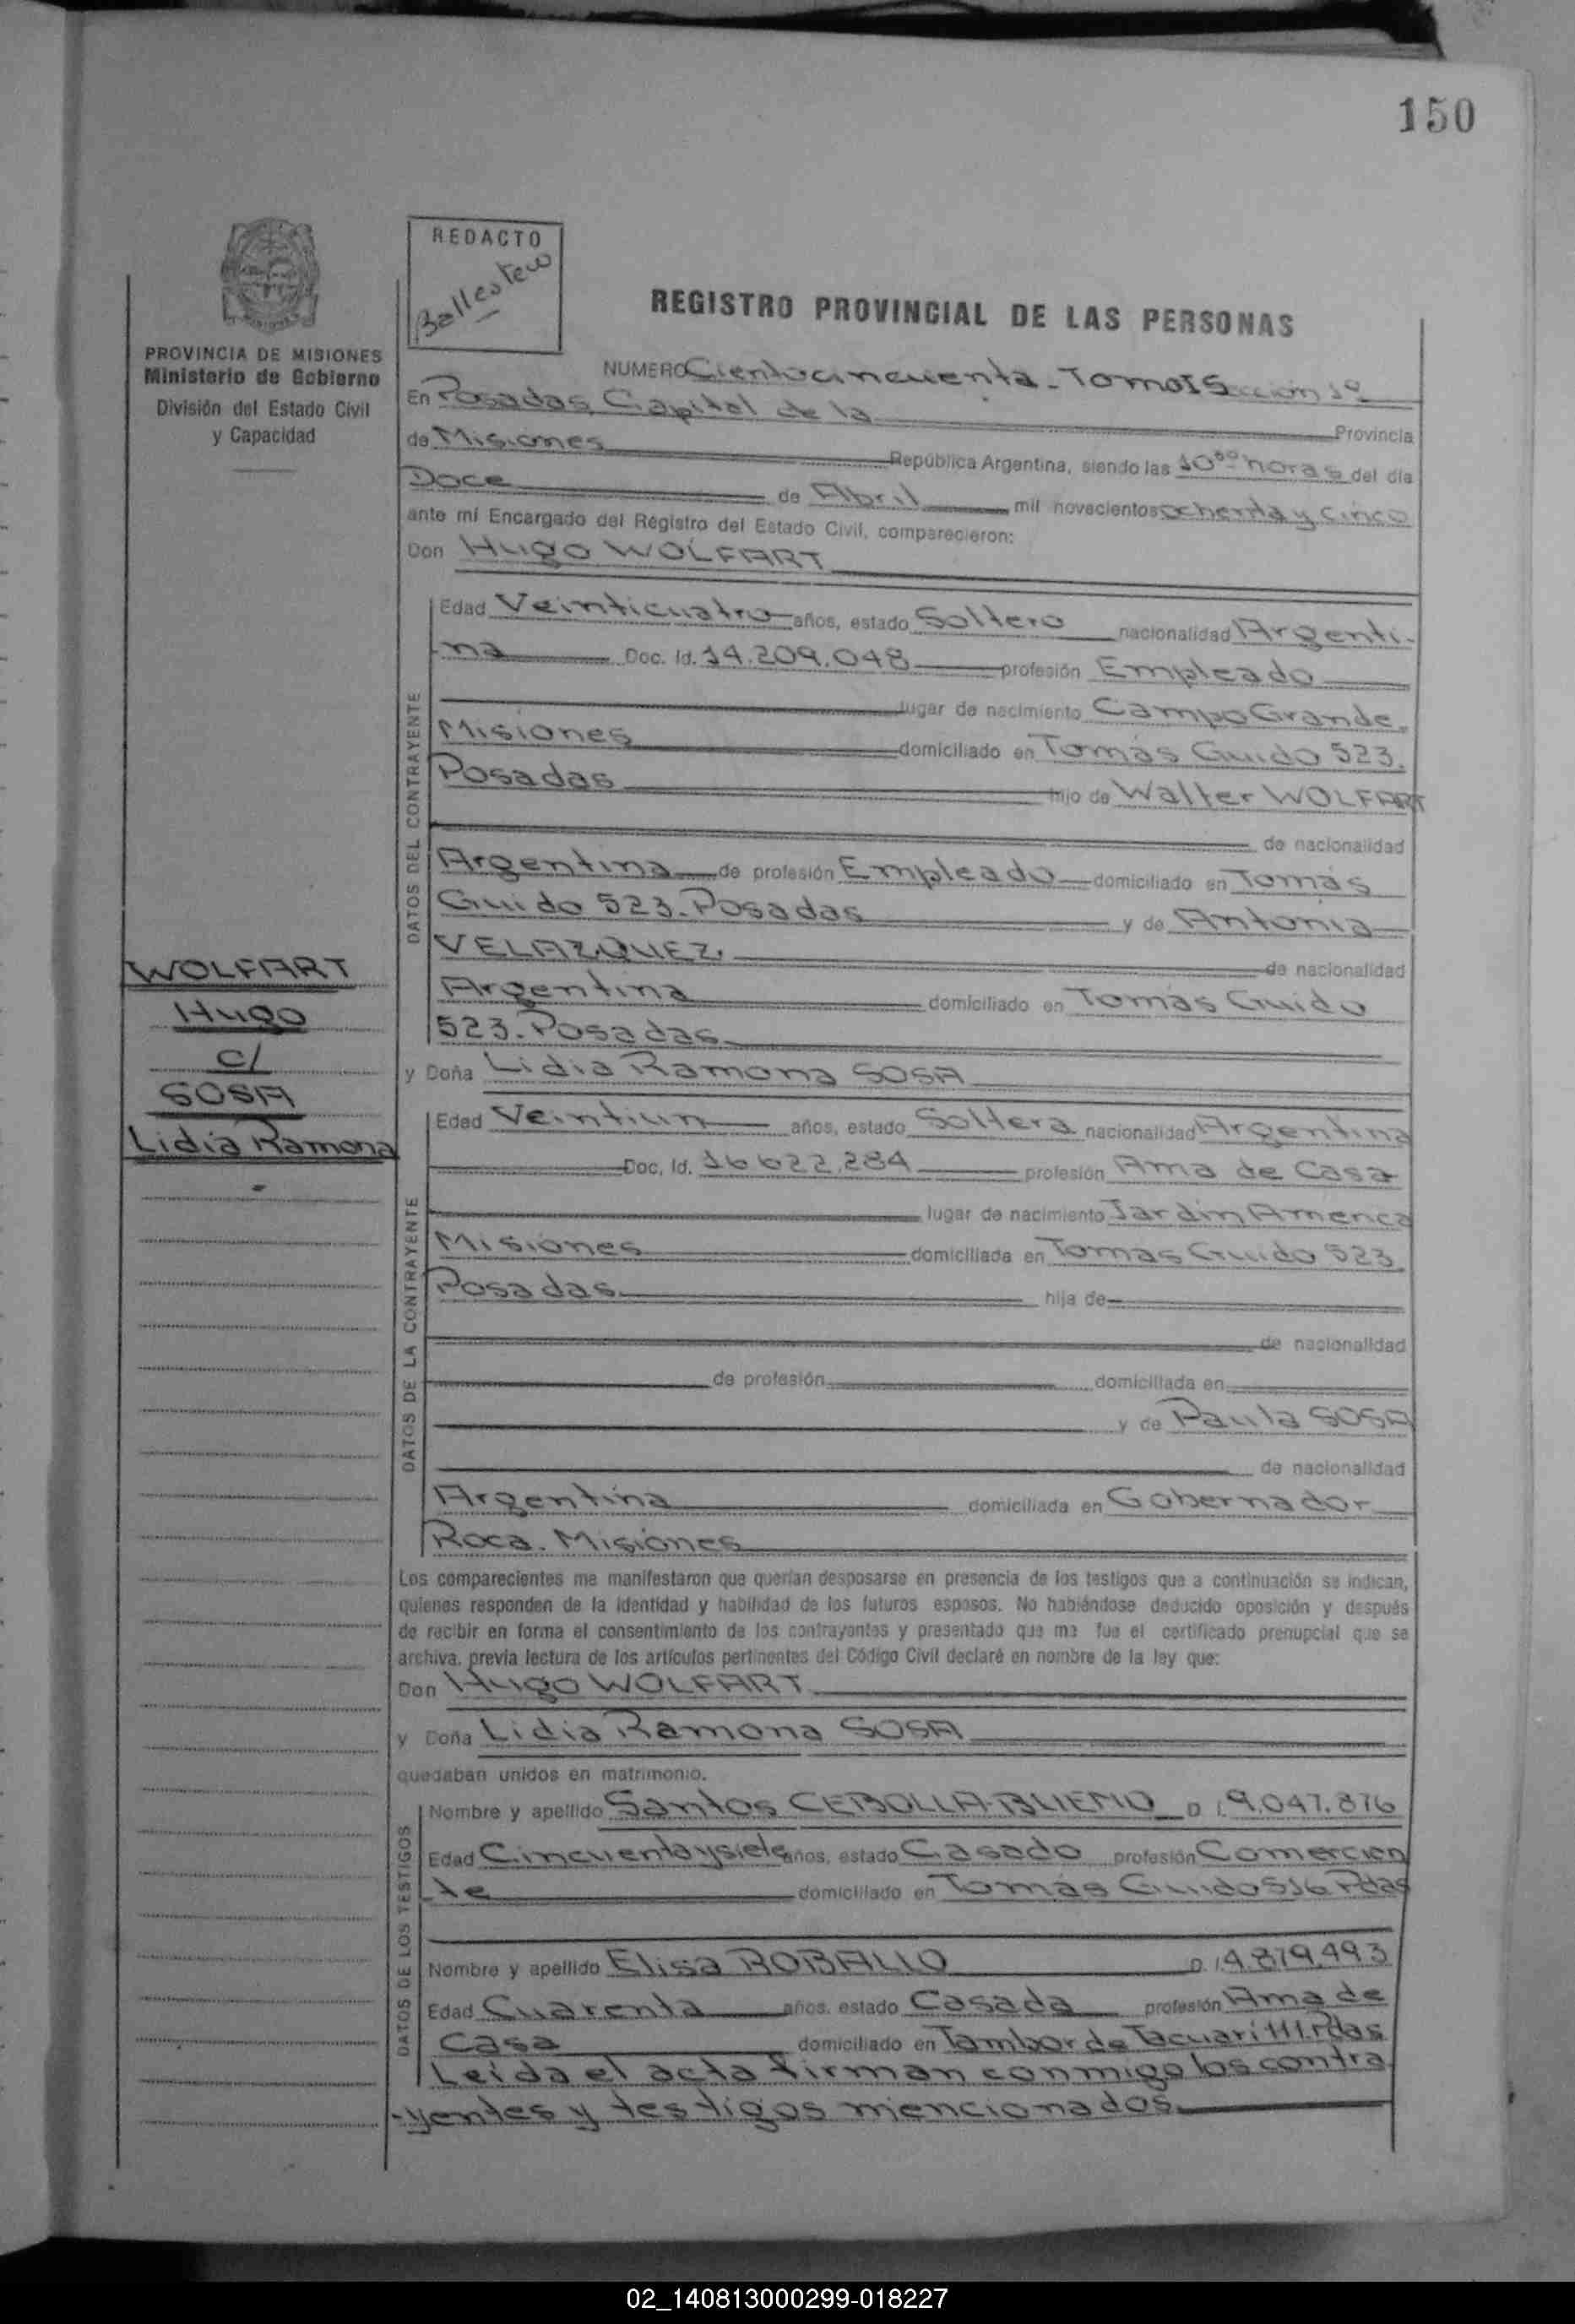 150
REDACTO
Ballestero
REGISTRO PROVINCIAL DE LAS PERSONAS
PROVINCIA DE MISIONES
Ministerio de Gobierno
División del Estado Civil
y Capacidad
NUMERO Cientocincuenta - Tomo I Sección 1º
En Posadas, Capital de la Provincia
de Misiones República Argentina, siendo las 10 horas del día
Doce de Abril mil novecientos ochenta y cinco
ante mí Encargado del Registro del Estado Civil, comparecieron:
Don Hugo WOLFART
DATOS DEL CONTRAYENTE
Edad Veinticuatro años, estado Soltero nacionalidad Argenti-
-na Doc. Id. 14.209.048 profesión Empleado
lugar de nacimiento Campo Grande,
Misiones domiciliado en Tomás Guido 523.
Posadas hijo de Walter WOLFART
de nacionalidad
Argentina de profesión Empleado domiciliado en Tomás
Guido 523. Posadas y de Antonia
VELAZQUEZ. de nacionalidad
Argentina domiciliado en Tomás Guido
523. Posadas
WOLFART
Hugo
c/
SOSA
Lidia Ramona
y Doña Lidia Ramona SOSA
DATOS DE LA CONTRAYENTE
Edad Veintiun años, estado Soltera nacionalidad Argentina
Doc. Id. 16.622.284 profesión Ama de Casa
lugar de nacimiento Jardín America
Misiones domiciliada en Tomas Guido 523.
Posadas. hija de
de nacionalidad
de profesión domiciliada en
y de Paula SOSA
de nacionalidad
Argentina domiciliada en Gobernador
Roca. Misiones
Los comparecientes me manifestaron que querían desposarse en presencia de los testigos que a continuación se indican,
quienes responden de la identidad y habilidad de los futuros esposos. No habiéndose deducido oposición y después
de recibir en forma el consentimiento de los contrayentes y presentado que me fue el certificado prenupcial que se
archiva, previa lectura de los artículos pertinentes del Código Civil declaré en nombre de la ley que:
Don Hugo WOLFART
y Doña Lidia Ramona SOSA
quedaban unidos en matrimonio.
DATOS DE LOS TESTIGOS
Nombre y apellido Santos CEBOLLA-BUENO D.I. 9.047.876
Edad Cincuentaysiete años, estado Casado profesión Comercian
te domiciliado en Tomás Guido 516 Pdas
Nombre y apellido Elisa ROBALLO D.I. 4.879.493
Edad Cuarenta años, estado Casada profesión Ama de
Casa domiciliado en Tambor de Tacuarí 111. Pdas
Leída el acta firman conmigo los contra
-yentes y testigos mencionados.
02_140813000299-018227